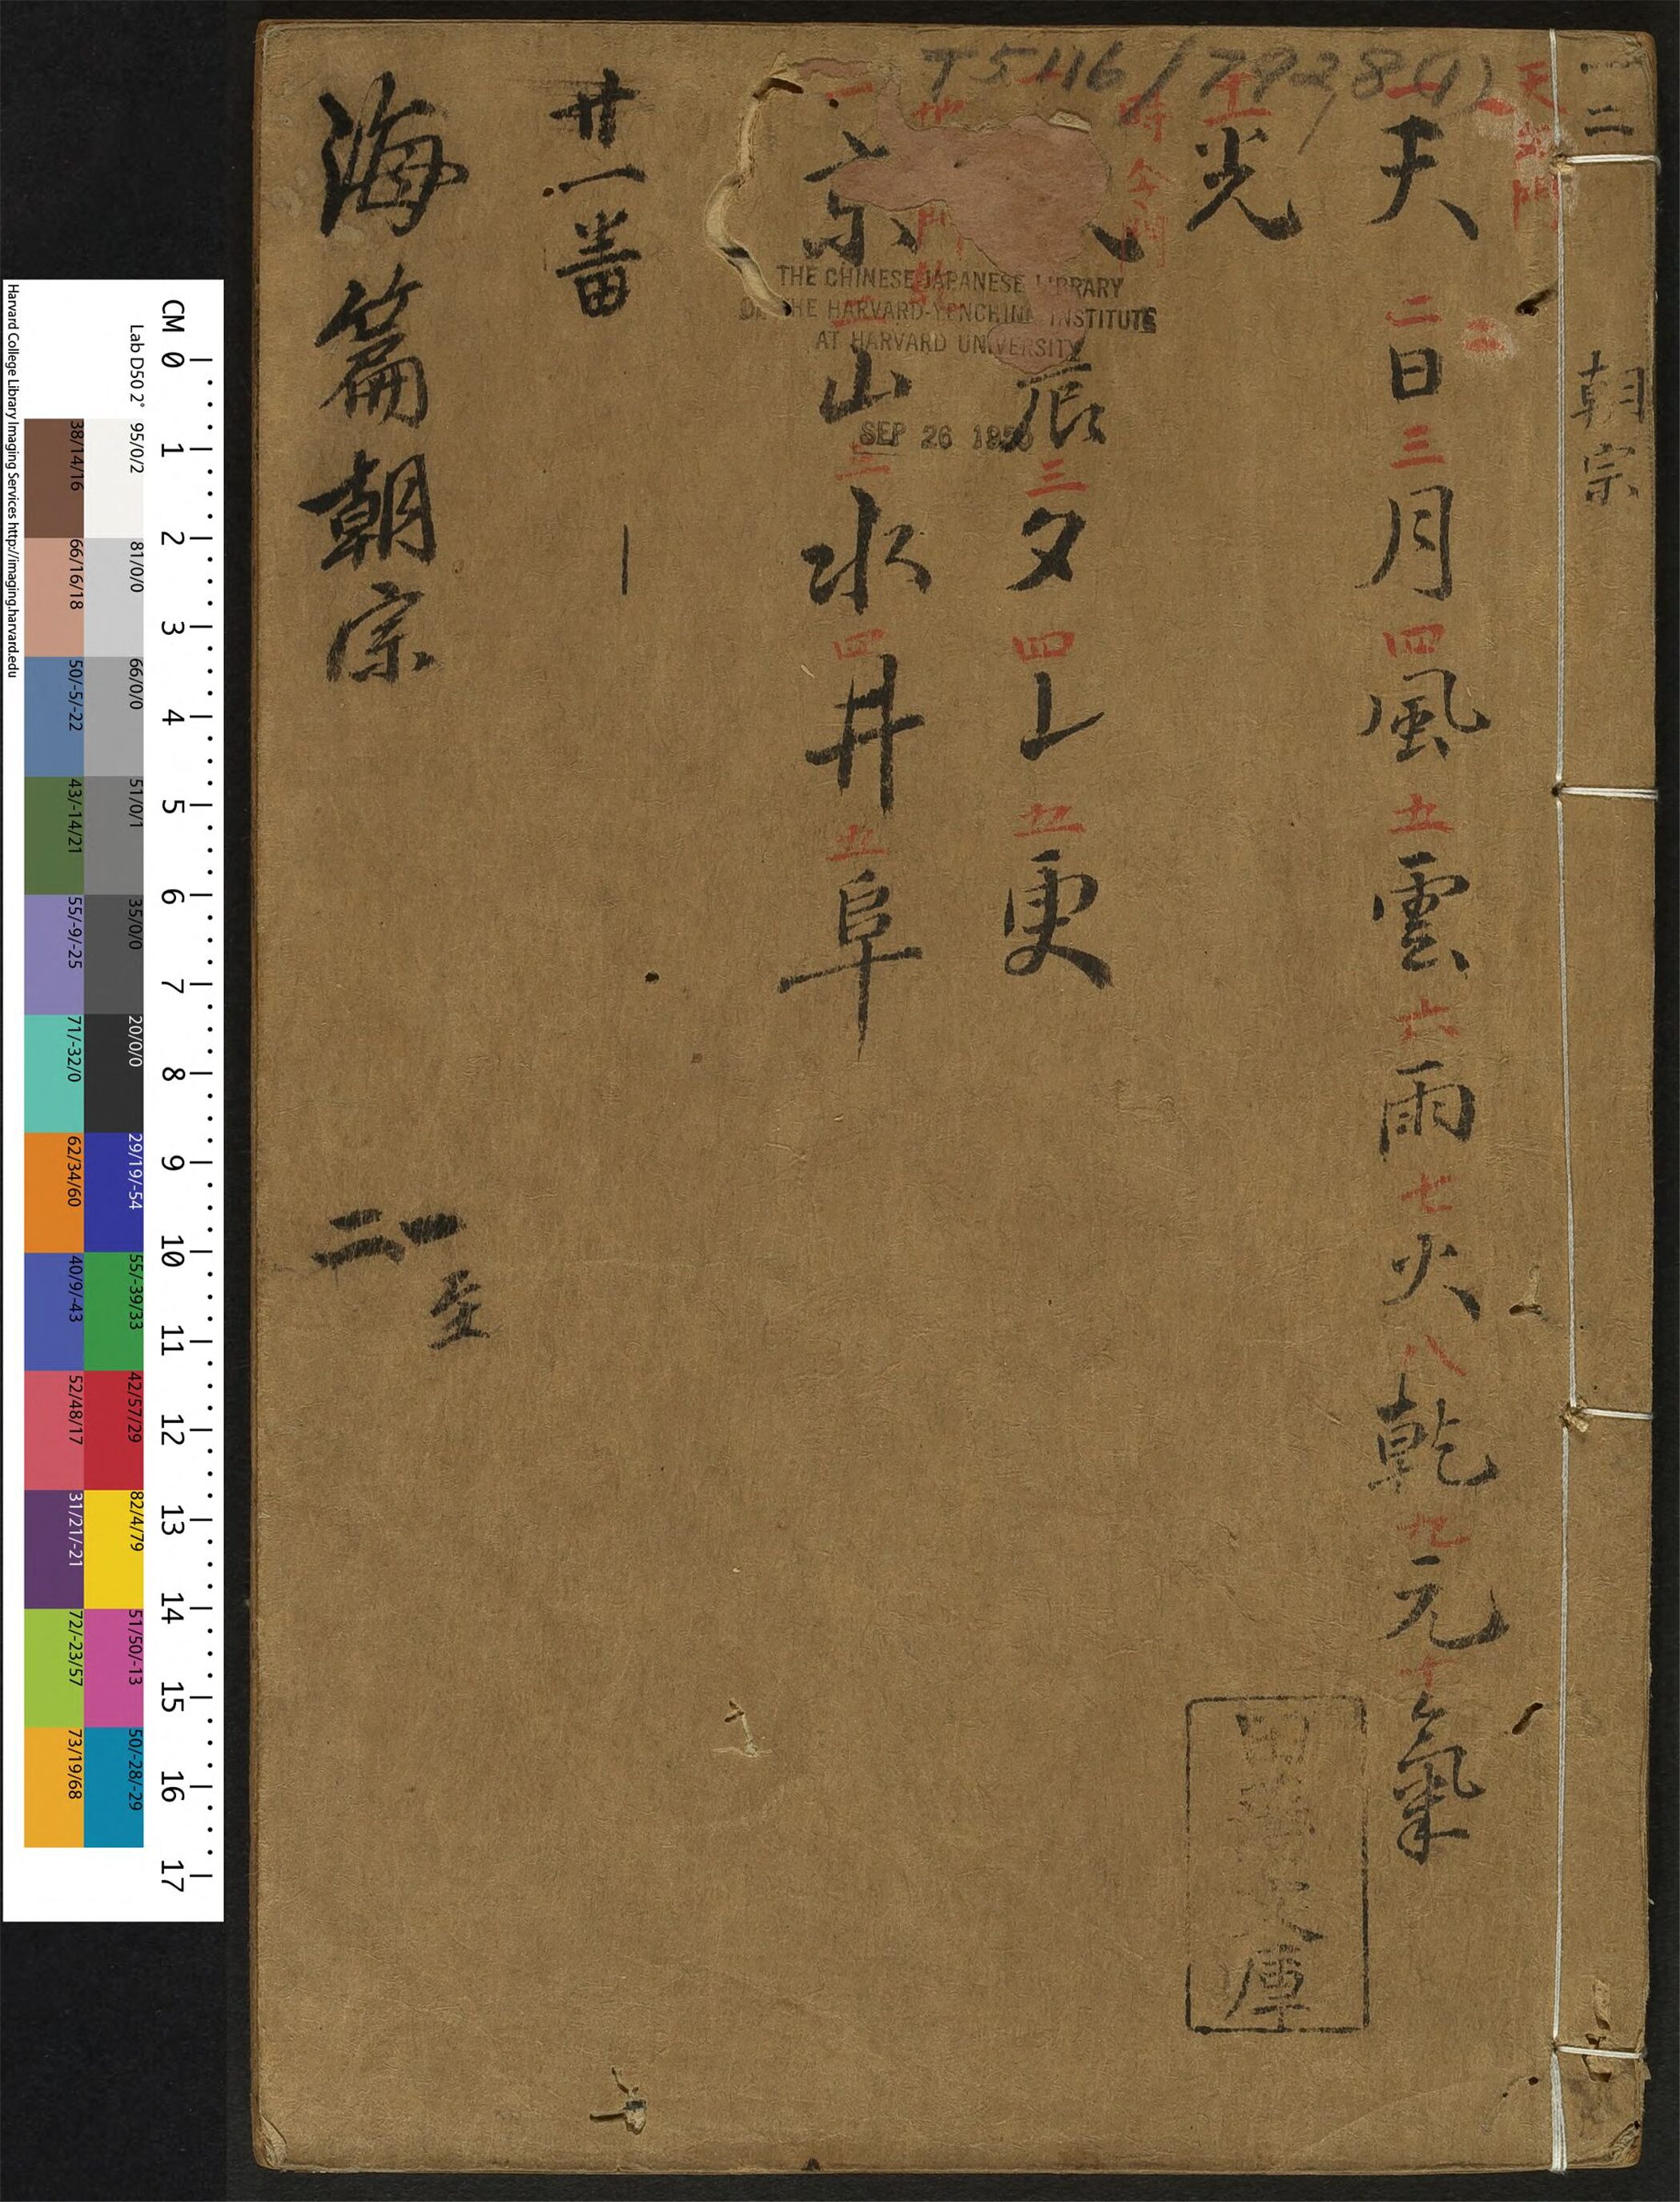 一二
朝宗
天文門
一天二日三月四風五雲六雨七火八乾九元十氣
二
十一光
時令門
辰三夕四⺊五更
地
門
一京二山三水四井五阜
廿一番
海篇朝宗
一至二
T5116/7928(1)
THE CHINESE-JAPANESE LIBRARY
OF THE HARVARD-YENCHING INSTITUTE
AT HARVARD UNIVERSITY
SEP 26 195
文庫
CM 0 1 2 3 4 5 6 7 8 9 10 11 12 13 14 15 16 17
Lab D50 2° 95/0/2 81/0/0 66/0/0 51/0/1 35/0/0 20/0/0 29/19/-54 55/-39/33 42/57/29 82/4/79 51/50/-13 50/-28/-29
38/14/16 66/16/18 50/-5/-22 43/-14/21 55/-9/-25 71/-32/0 62/34/60 40/9/-43 52/48/17 31/21/-21 72/-23/57 73/19/68
Harvard College Library Imaging Services http://imaging.harvard.edu